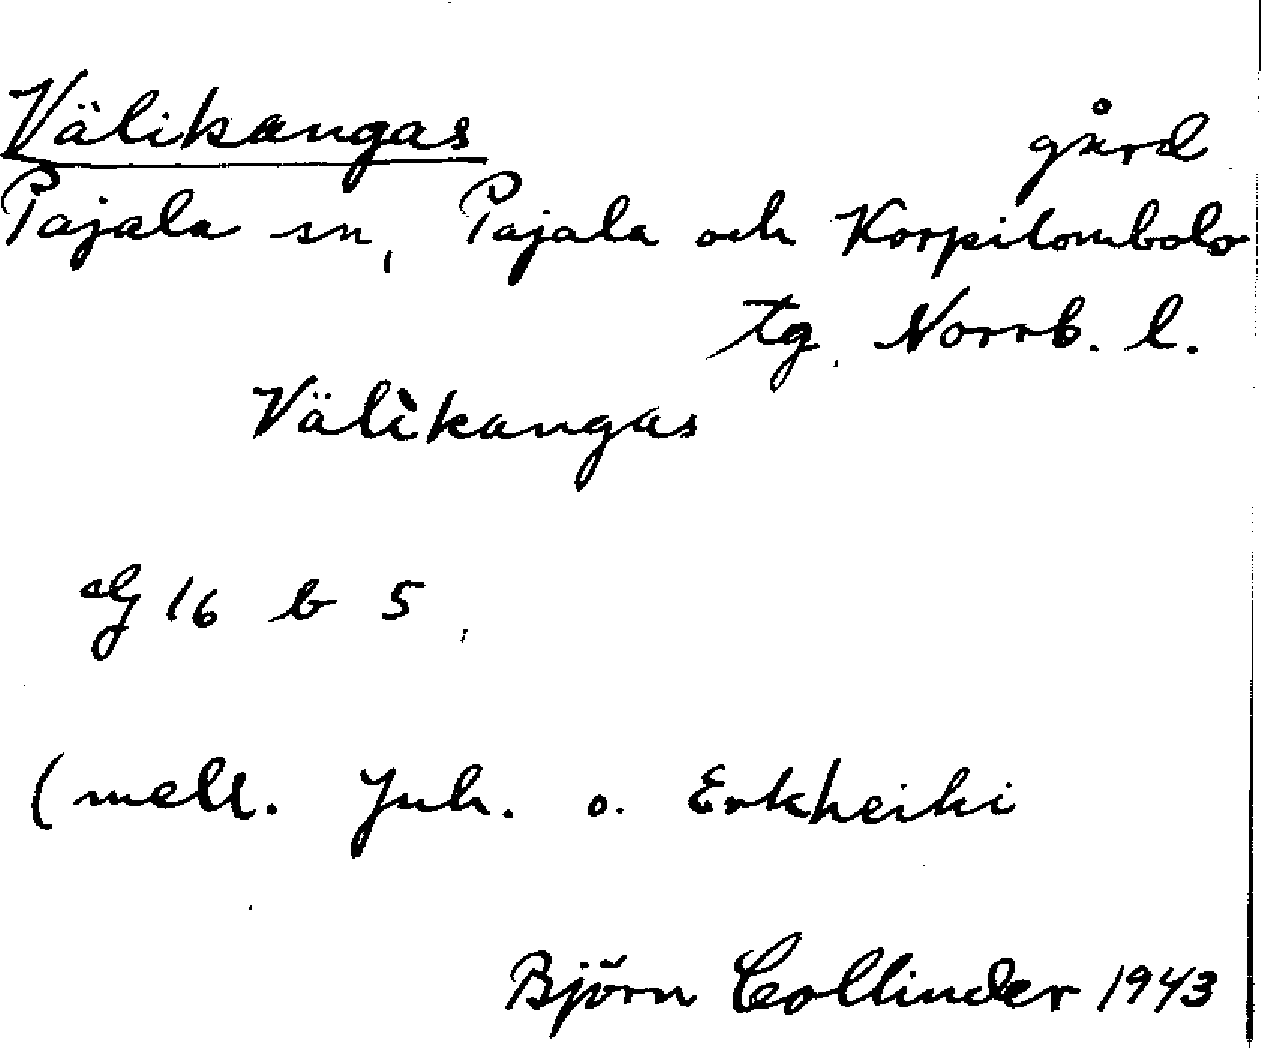 Välikangas gård
Pajala sn, Pajala och Korpilombolo
tg. Norrb. l.
Välikangas
G 16 b 5
(mell. Juh. o. Erkheiki
Björn Collinder 1943